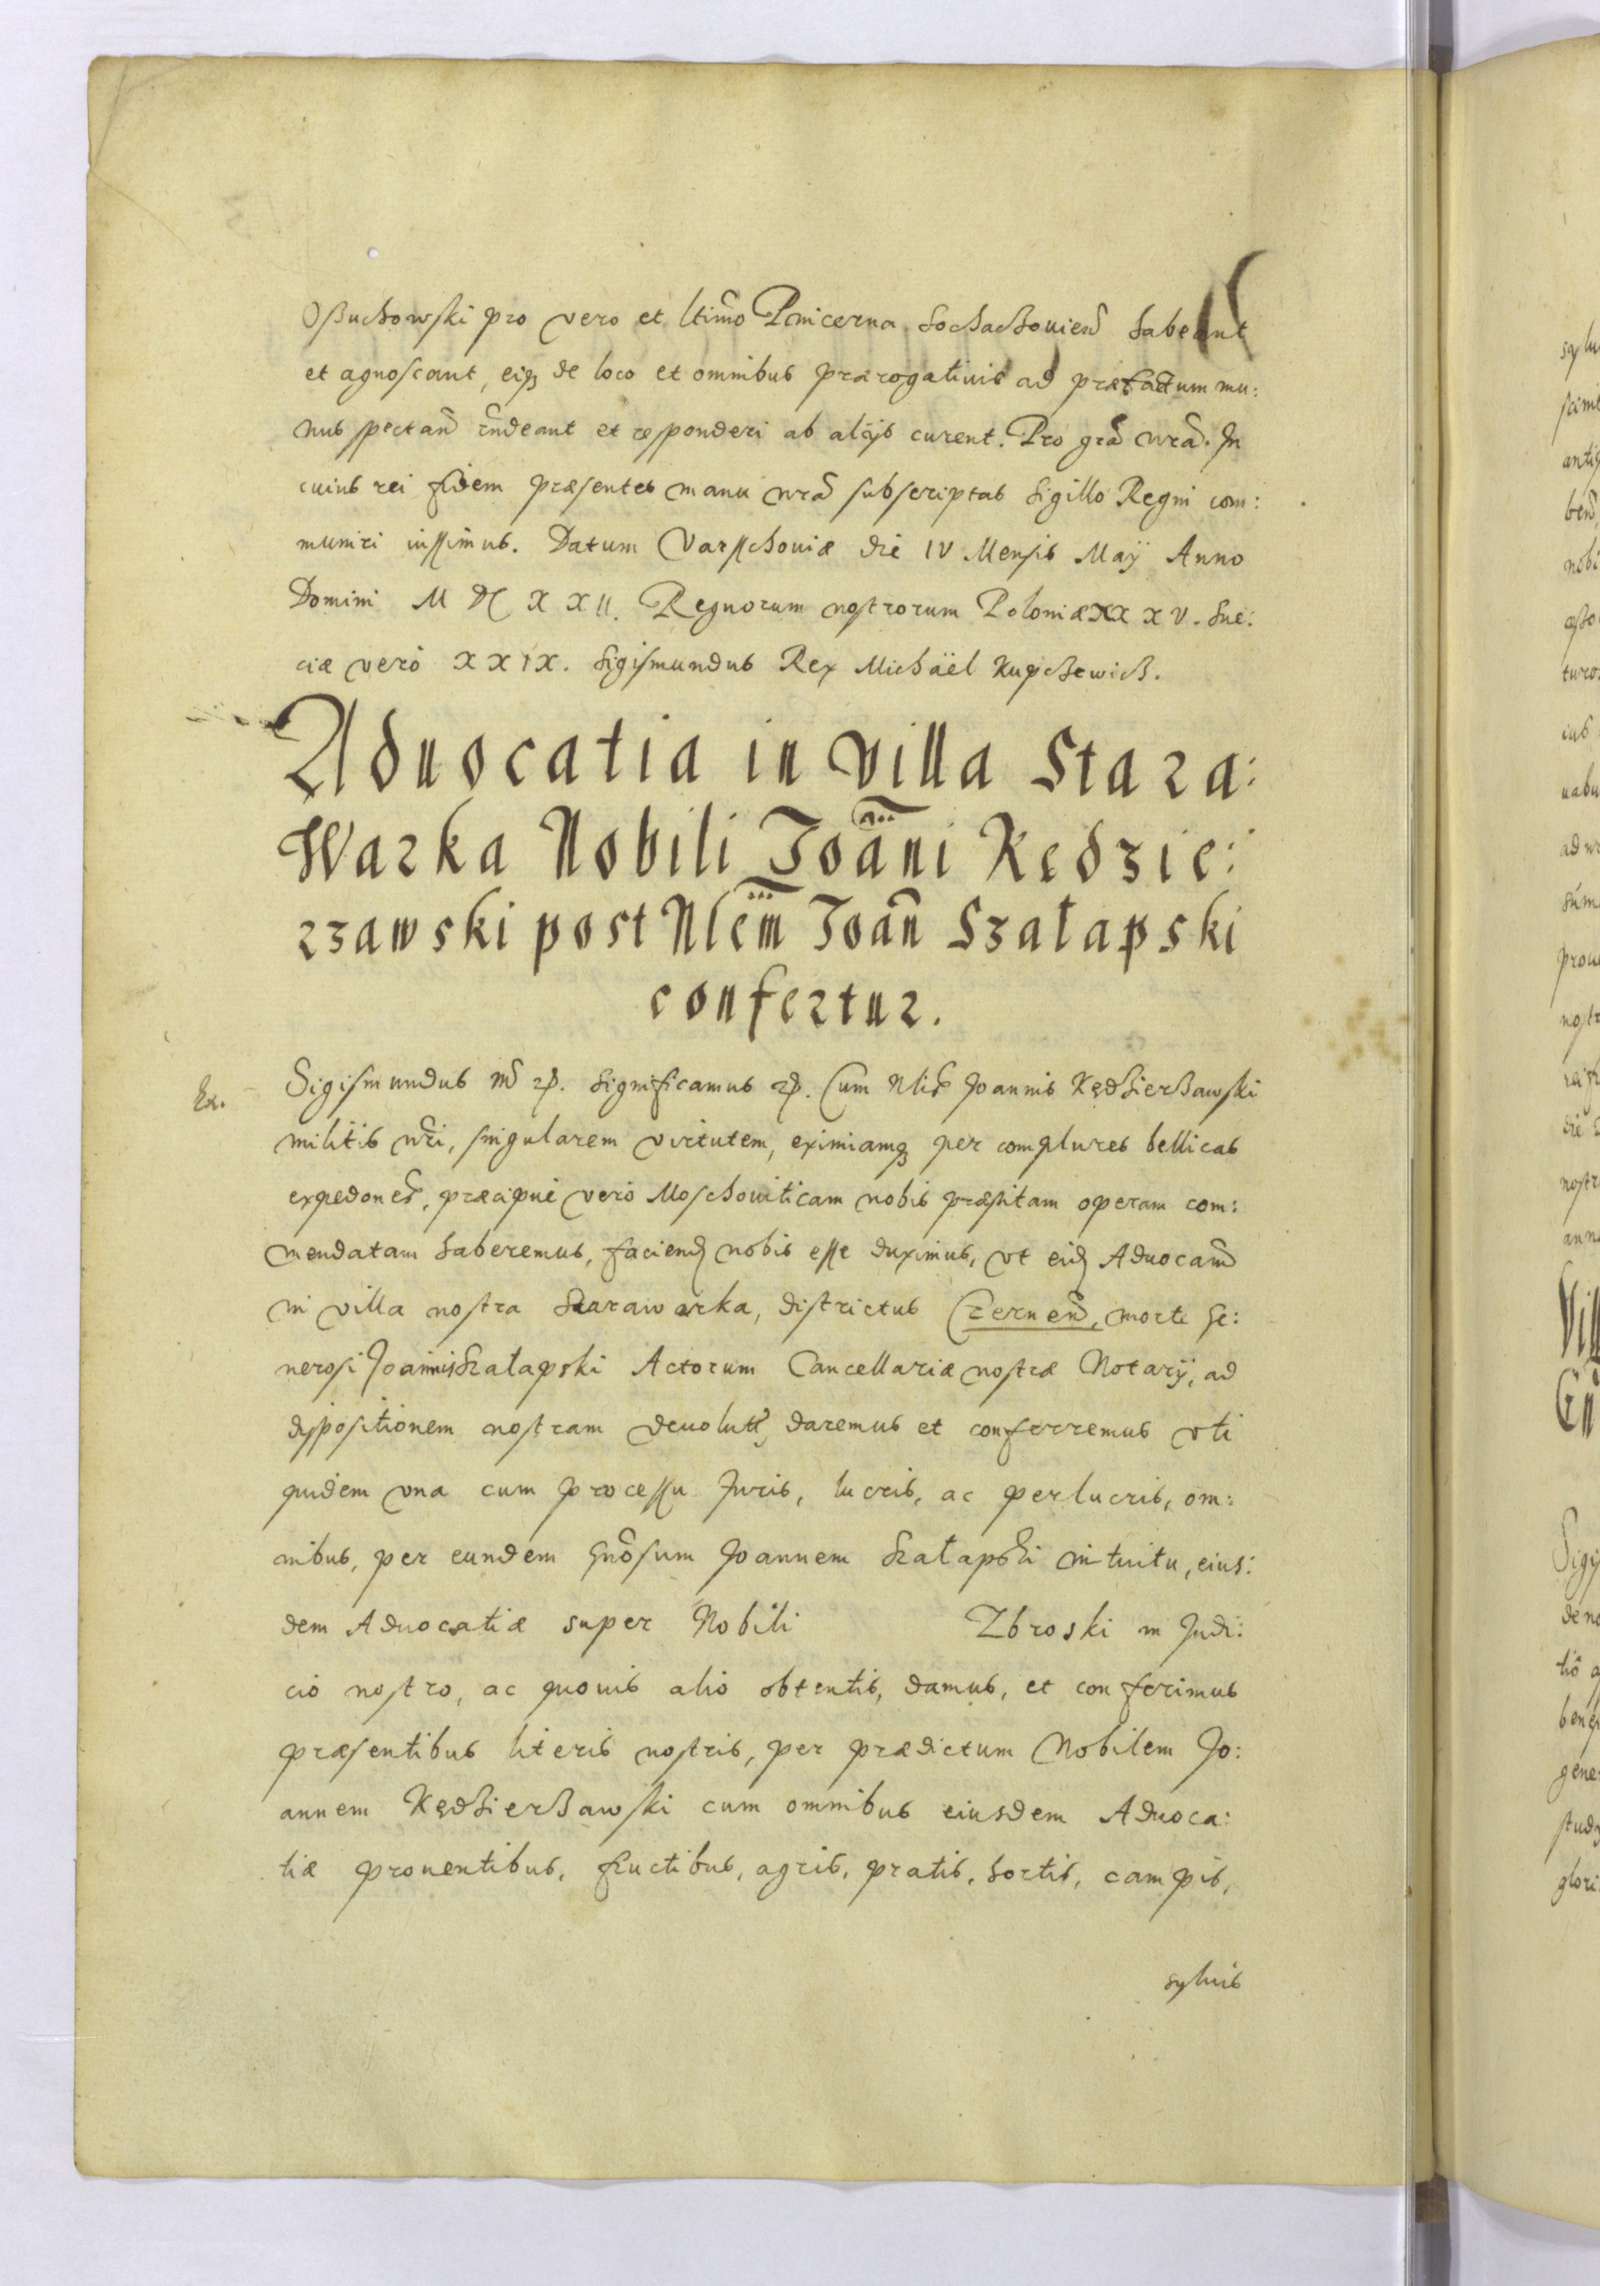 Oszuchowski pro vero et ltimo Pincerna Sochachouien habeant
et agnoscant, eiq de loco et omnibus prærogatiuis ad præfactum mu:
nus spectan rndeant et responderi ab alijs curent. Pro gra nra. In
cuius rei fidem præsentes manu nra subscriptas Sigillo Regni com:
muniri iussimus. Datum Varsschouiæ die IV Mensis Maÿ Anno
Domini M DC X X II. Regnorum nostrorum Poloniæ XX X V. Sue:
ciæ verò X X I X. Sigismundus Rex Michäel Kupchewich.
Aduocatia in villa Stara:
Warka Nobili Joãni Kędzie:
rzawski post Nlem Joãn Szałapski
confertur.
Ex.
Sigismundus III etc. Significamus etc. Cum Nlis Joannis Kędzierzawski
militis nri, singularem virtutem, eximiamq per complures bellicas
expedones, præcipuè verò Moschouiticam nobis præstitam operam com:
mendatam haberemus, faciend nobis esse duximus, vt eid Aduocam
in villa nostra Starawarka, districtus Czernen, morte Ge:
nerosi Joannis Szałapski Actorum Cancellariæ nostræ Notarij, ad
dispositionem nostram deuolutam daremus et conferremus vti
quidem vna cum processu Juris, lucris, ac perlucris, om:
nibus, per eundem Gnosum Joannem Szałapski intuitu, eius:
dem Aduocatiæ super Nobili Zbroski in Judi:
cio nostro, ac quouis alio obtentis, damus, et conferimus
præsentibus literis nostris, per prædictum Nobilem Jo:
annem Kędzierzawski cum omnibus eiusdem Aduoca:
tiæ prouentibus, fructibus, agris, pratis, hortis, campis,
syluis